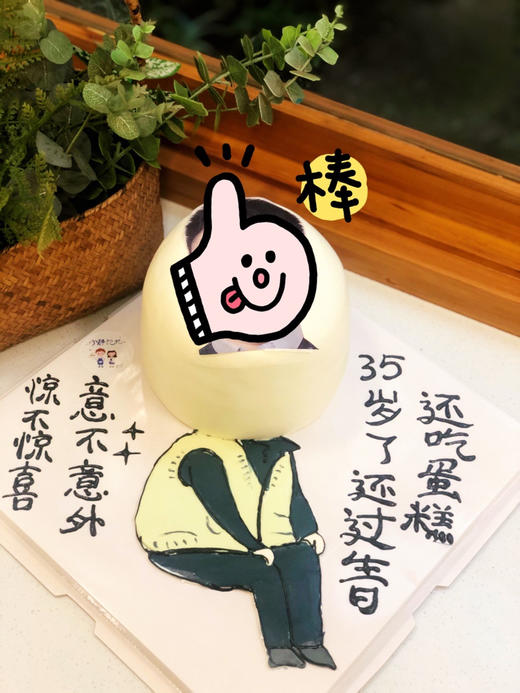 棒
惊不惊喜
意不意外
35岁了还过生日
还吃蛋糕